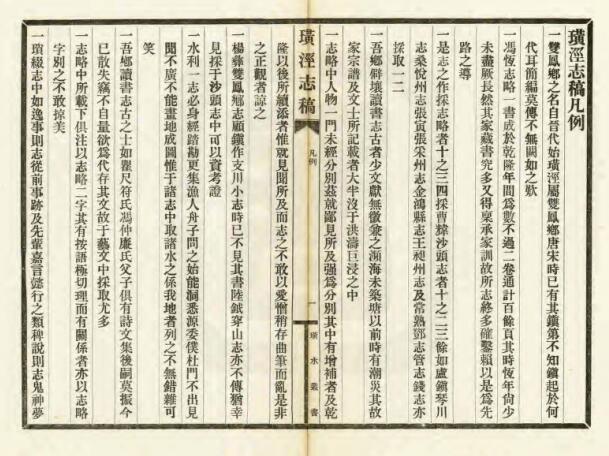 璜涇志稿凡例
一雙鳳鄉之名自晉代始璜涇屬雙鳳鄉唐宋時已有其鎮第不知鎮起於何
代耳簡編莫傳不無闕如之歎
一馮恆志略一書成於乾隆年間爲數不過二卷通計百餘頁其時恆年尙少
未盡厥長然其家藏書究多又得稟承家訓故所志終多確鑿賴以是爲先
路之導
一是志之作採志略者十之三四採曹煒沙頭志者十之二三餘如盧鎮琴川
志桑悅州志張寅張采州志金鴻縣志王昶州志及常熟鄧志管志錢志亦
採取一二
一吾鄉僻壤讀書志古者少文獻無徵兼之瀕海未築塘以前時有潮災其故
家宗譜及文士所記載者大半沒于洪濤巨浸之中
一志略中人物一門未經分別茲就鄙見所及强爲分別其中有增補者及乾
隆以後所續添者惟就見聞所及而志之不敢以愛憎稍存曲筆而亂是非
之正觀者諒之
璜涇志稿
凡例
一
璜水叢書
一楊彝雙鳳鄉志顧鎮作支川小志時已不見其書陸鉞穿山志亦不傳猶幸
見採于沙頭志中可以資考證
一水利一志必身經踏勘更集漁人舟子問之始能洞悉源委僕杜門不出見
聞不廣不能畫地成圖惟于諸志中取諸水之係我地者列之不無錯雜可
笑
一吾鄉讀書志古之士如翟尺符氏馮仲廉氏父子俱有詩文集後嗣莫振今
已散失竊不自量欲爲代存其文故于藝文中採取尤多
一志略中所載下俱注以志略二字其有按語極切理而有關係者亦以志略
字別之不敢掠美
一瑣綴志中如逸事則志從前事跡及先輩嘉言懿行之類稗說則志鬼神夢